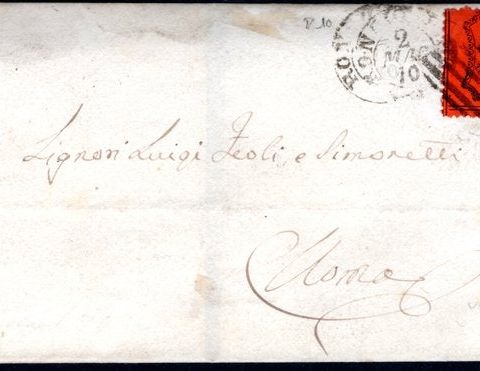 P. 10
ROMA
2
MAG
10
Signori Luigi Feoli, e Simonetti
Roma